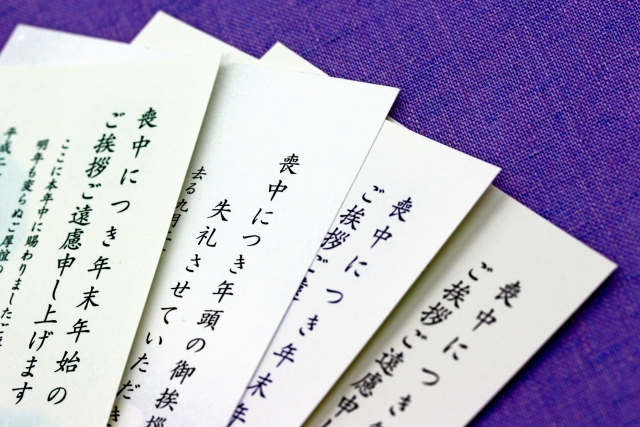 喪中につき年末年始の
ご挨拶ご遠慮申し上げます
ここに本年中に賜わりましたご
明年も変らぬご厚誼の
平成二
喪中につき年頭の御挨拶
失礼させていただき
去る九月
喪中につき年末年
ご挨拶ご遠
喪中につき
ご挨拶ご遠慮申し